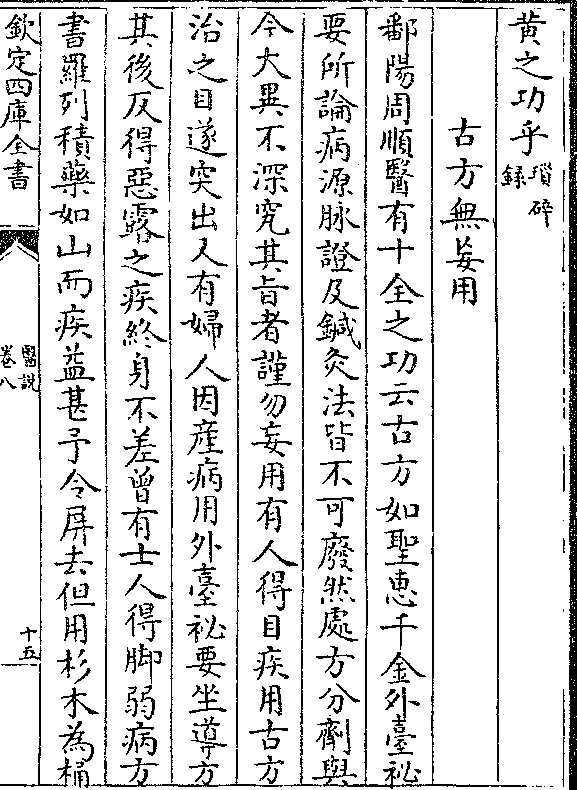 黄之功乎瑣碎
録
古方無妄用
鄱陽周順醫有十全之功云古方如聖惠千金外臺祕
要所論病源脉證及鍼灸法皆不可廢然處方分劑與
今大異不深究其旨者謹勿妄用有人得目疾用古方
治之目遂突出又有婦人因産病用外臺祕要坐導方
其後反得惡露之疾終身不差曾有士人得脚弱病方
書羅列積藥如山而疾益甚予令屏去但用杉木為桶
欽定四庫全書
醫説
卷八
十五